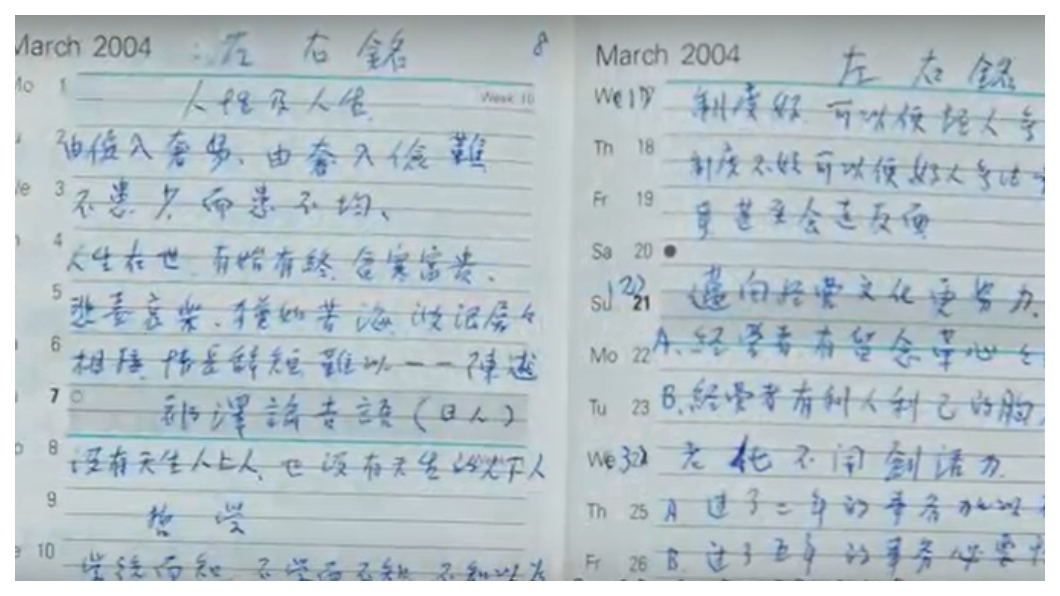 March 2004 左 右 銘 8
Mo 1 人性及人生 Week 10
由儉入奢易、由奢入儉難
We 3 不患少而患不均、
4 人生在世 有始有終 貧寒富貴、
5 悲喜哀樂、猶如苦海 波浪層々
6 相陪 情長辭短 難以一一陳述
7 諭吉語(日人)
8 沒有天生人上人、也沒有天生人下人
9 哲 學
10 學後而知 不學而不知
March 2004 左 右 銘
We 17 制度好 可以使壞人
Th 18 制度不好可以使好人無法
Fr 19 甚至會走反面
Sa 20
Su 21 邁向經營文化更努力.
Mo 22 A、經營者 有留念
Tu 23 B、經營者有利人利己的胸
We 老化不用創活力
Th 25 A 过了二年的事務
Fr 26 B. 过了五年的事務必要